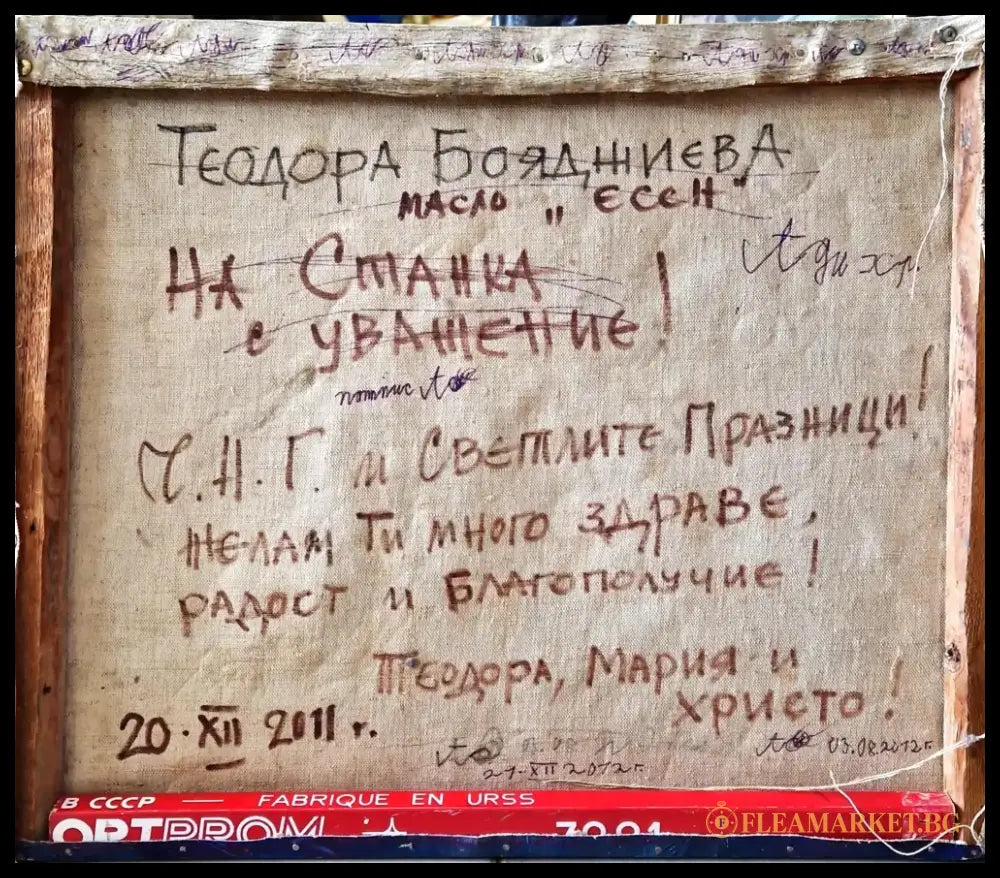 ТЕОДОРА БОЯДЖИЕВА
МАСЛО „ЕСЕН“
НА СТАНКА
с УВАЖЕНИЕ!
подпис
Ч.Н.Г. и СВЕТЛИТЕ ПРАЗНИЦИ!
ЖЕЛАЯ ТИ МНОГО ЗДРАВЕ,
РАДОСТ И БЛАГОПОЛУЧИЕ!
ТЕОДОРА, МАРИЯ и
ХРИСТО!
20·XII 2011 г.
03.08.2012г.
21·XII 2012г.
В СССР — FABRIQUE EN URSS
ORTPROM
FLEAMARKET.BG